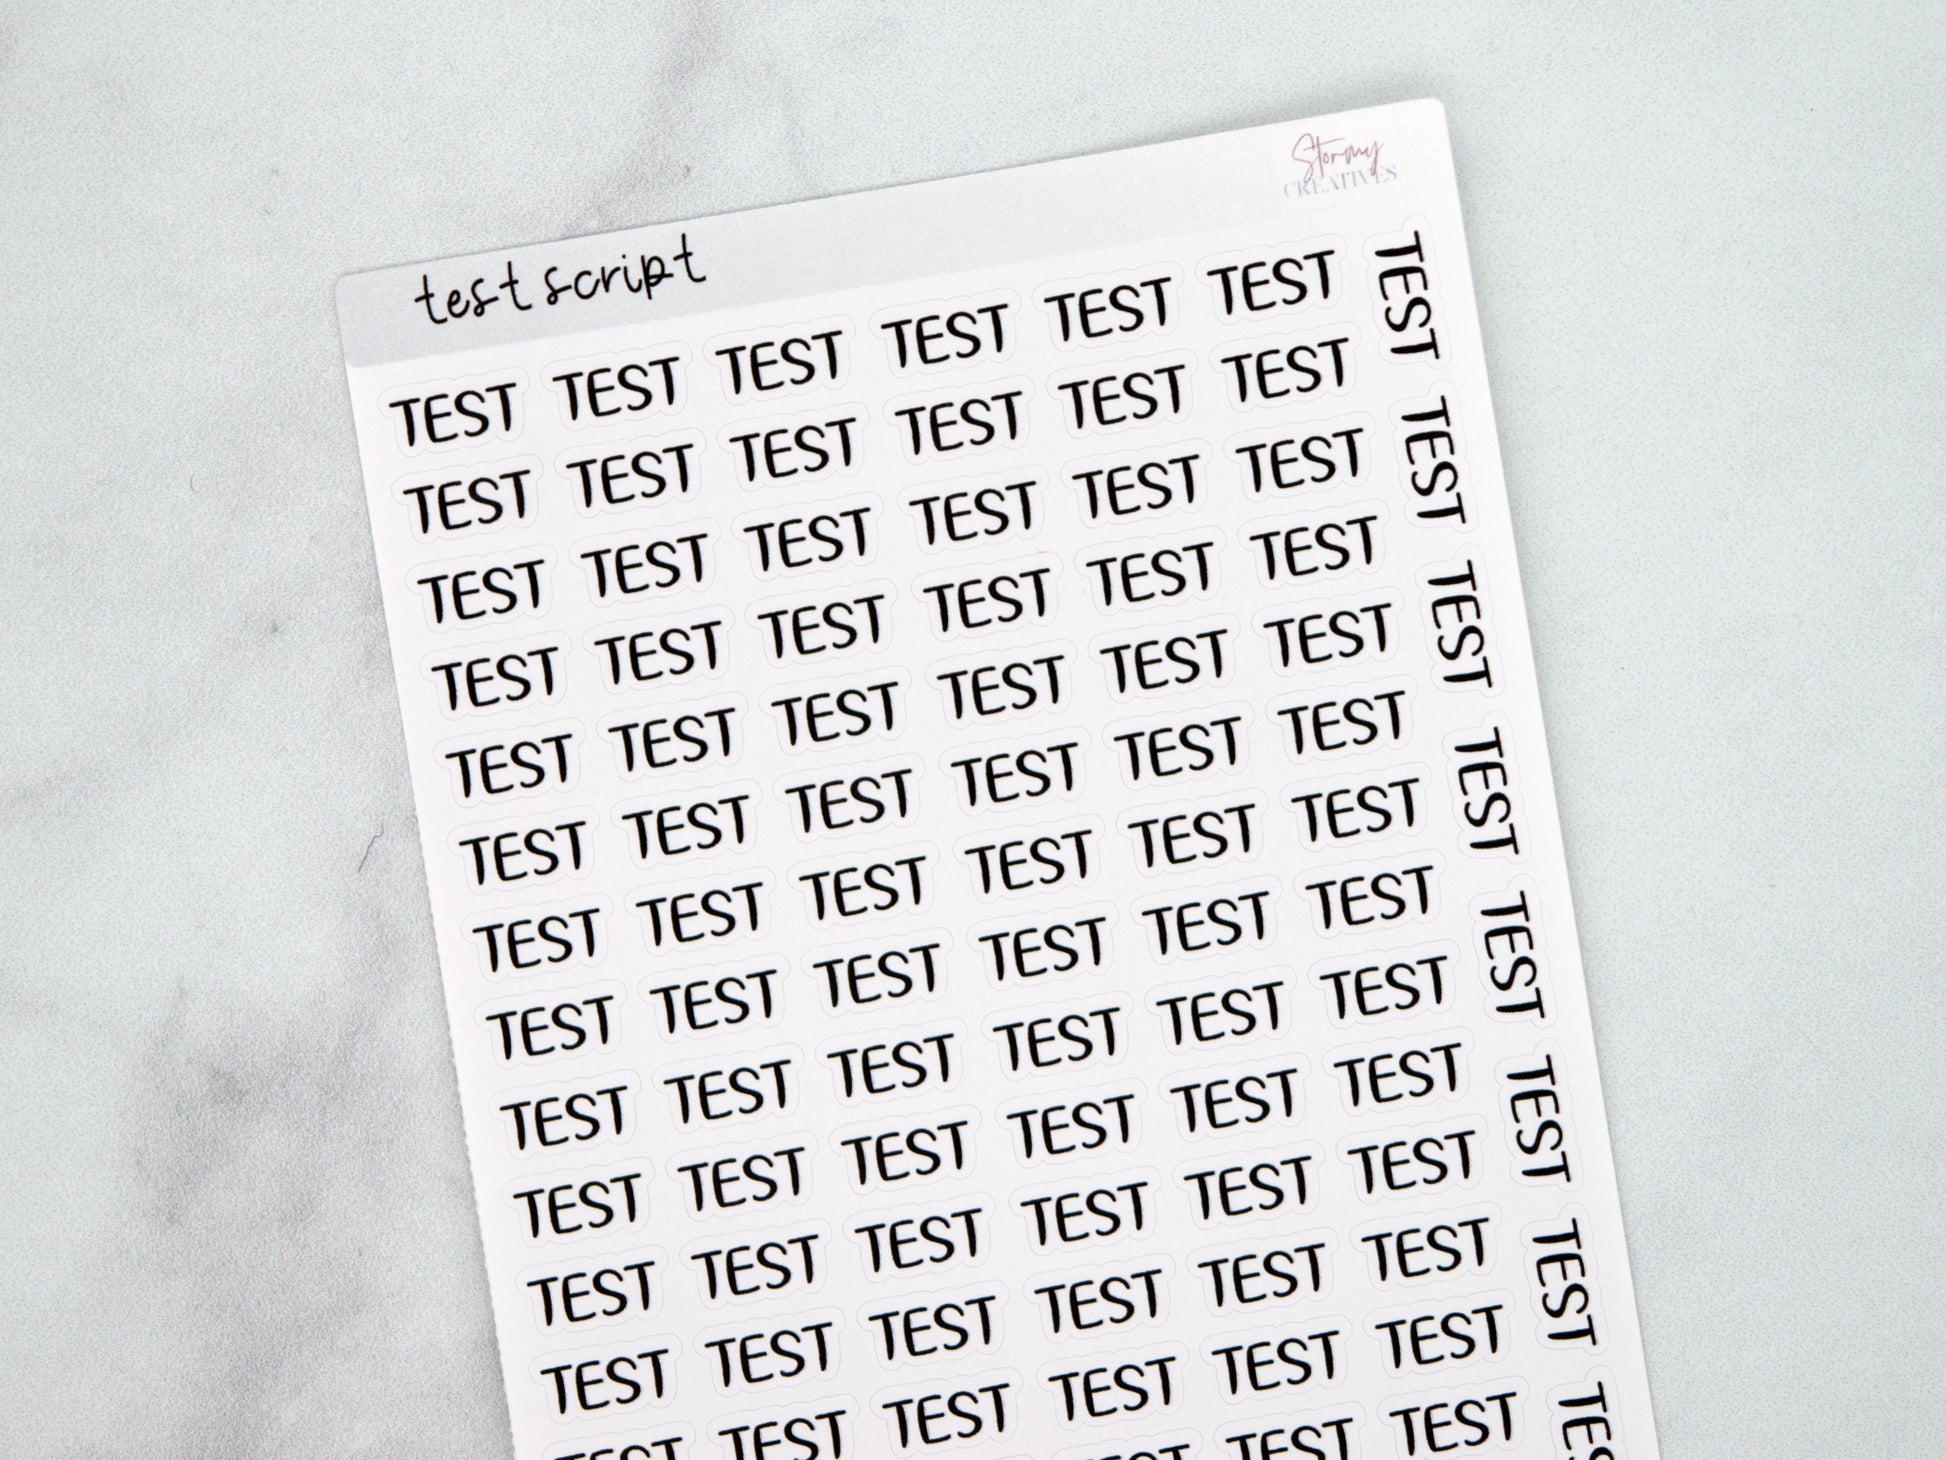 Stormy
CREATIVES
test script
TEST TEST TEST TEST TEST TEST
TEST TEST TEST TEST TEST TEST
TEST TEST TEST TEST TEST TEST
TEST TEST TEST TEST TEST TEST
TEST TEST TEST TEST TEST TEST
TEST TEST TEST TEST TEST TEST
TEST TEST TEST TEST TEST TEST
TEST TEST TEST TEST TEST TEST
TEST TEST TEST TEST TEST TEST
TEST TEST TEST TEST TEST TEST
TEST TEST TEST TEST TEST TEST
TEST TEST TEST TEST TEST TEST
TEST TEST TEST TEST TEST TEST
TEST TEST TEST
TEST
TEST
TEST
TEST
TEST
TEST
TEST
TES